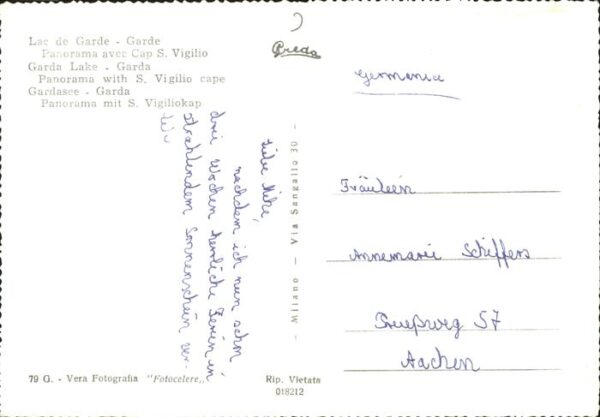 Lac de Garde - Garde
Panorama avec Cap S. Vigilio
Garda Lake - Garda
Panorama with S. Vigilio cape
Gardasee - Garda
Panorama mit S. Vigiliokap
Preda
Germania
Liebe Miki,
nachdem ich nun schon
drei Wochen herrliche Ferien in
strahlendem Sonnenschein ver-
- Milano - Via Sangallo 30 -
Fräulein
Annemarie Schiffers
57
Aachen
79 G. - Vera Fotografia "Fotocelere"
Rip. Vietata
018212